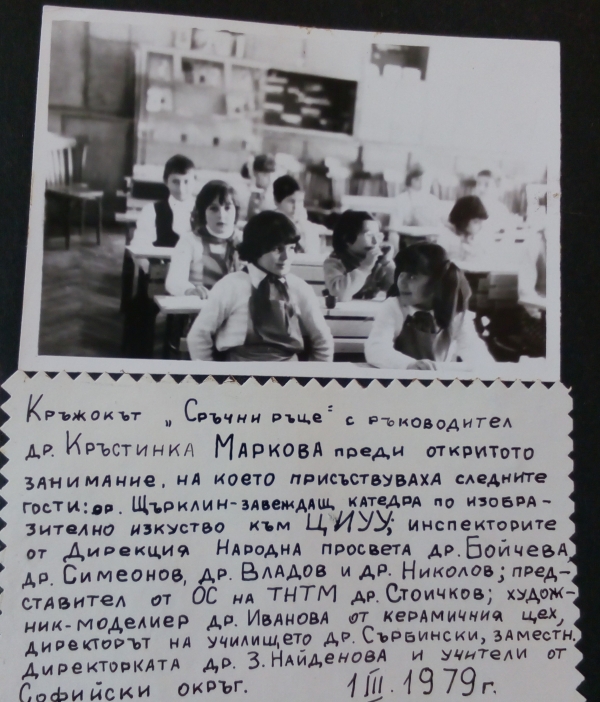 Кръжокът „Сръчни ръце“ с ръководител
др. Кръстинка Маркова преди откритото
занимание, на което присъствуваха следните
гости: др. Щърклин-завеждащ катедра по изобра-
зително изкуство към ЦИУУ; инспекторите
от Дирекция Народна просвета др. Бойчева,
др. Симеонов, др. Владов и др. Николов; пред-
ставител от ОС на ТНТМ др. Стоичков; худож-
ник-моделиер др. Иванова от керамичния цех,
директорът на училището др. Сърбински, заместн.
директорката др. З. Найденова и учители от
Софийски окръг. 1 III. 1979 г.